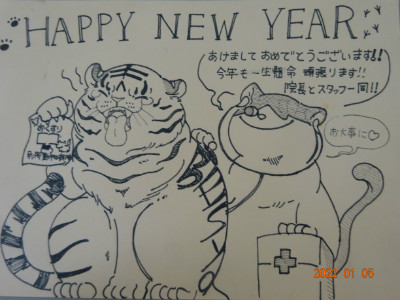 HAPPY NEW YEAR
あけまして おめでとうございます!!
今年も一生懸命 頑張ります!!
院長とスタッフ一同!!
お大事に♡
おくすり
2022 01 05